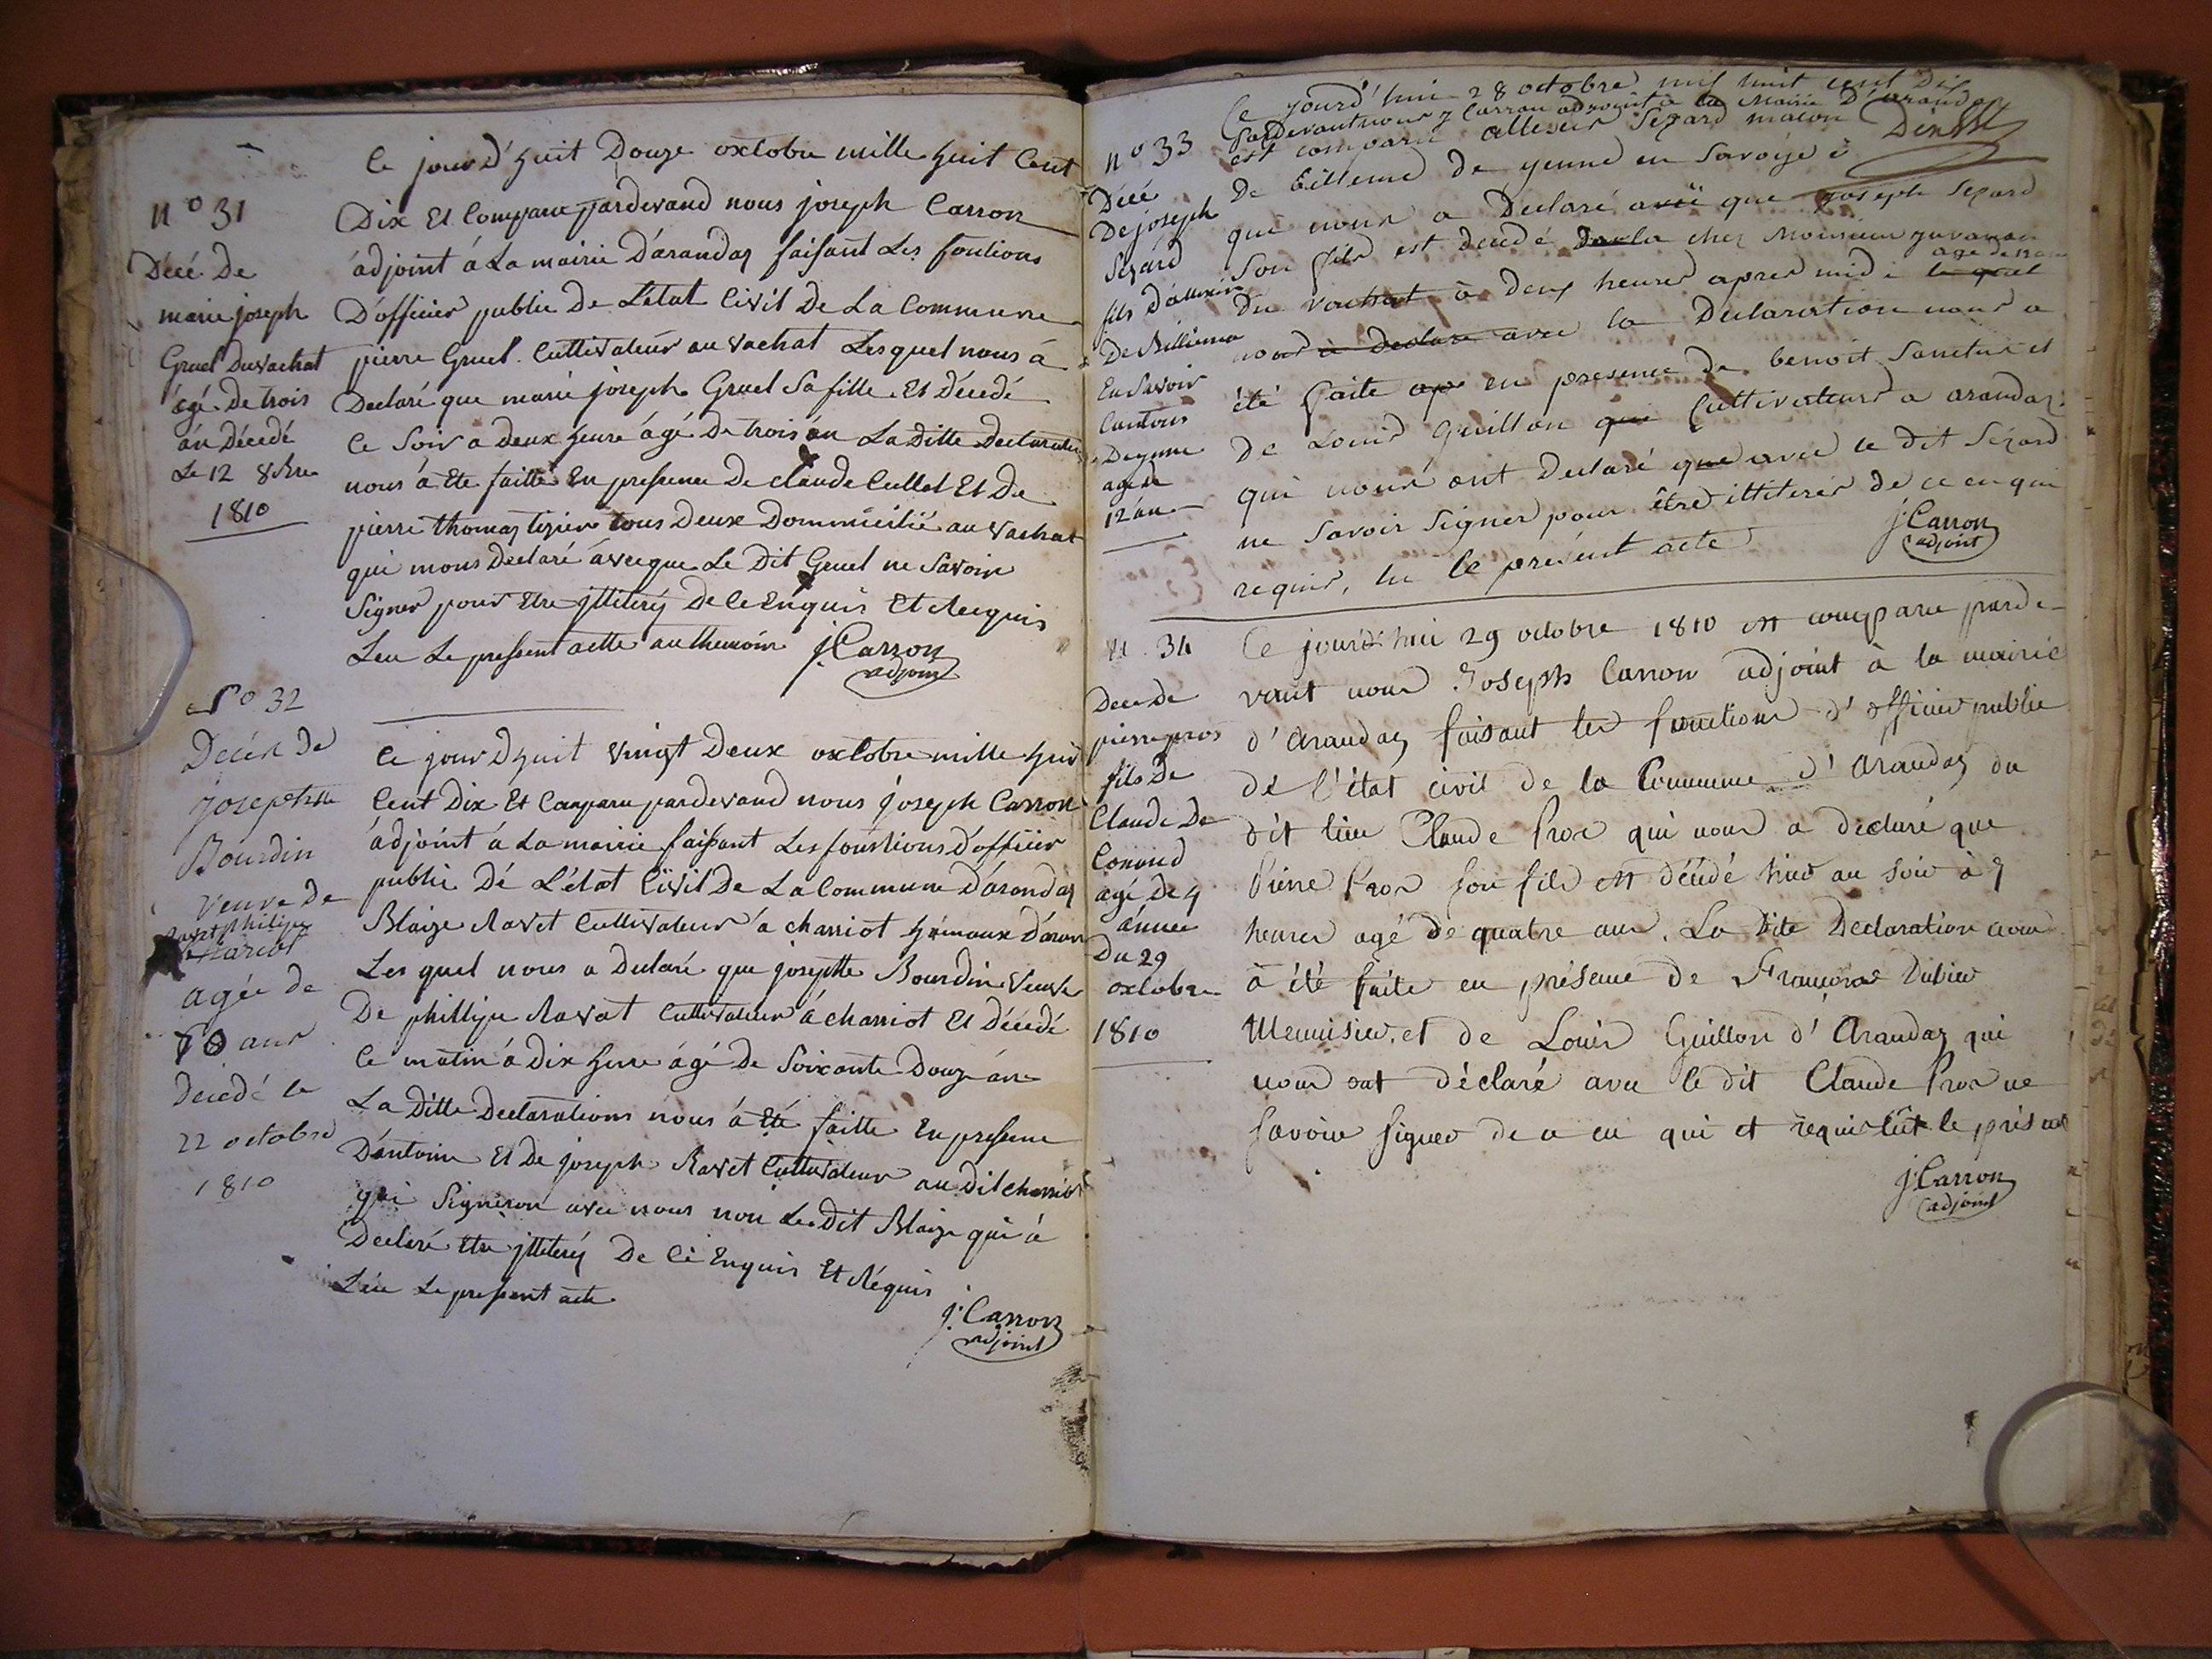 n° 31
Décé De
marie joseph
Gruel Du vachat
égé De trois
an Décedé
Le 12 8bre
1810
Ce jourd'huit Douze oxtobre mille huit Cent
Dix Et Comparu pardevand nous joseph Carron
adjoint á La mairie D'arandaz faisant Les fontions
D'officier public De L'état Civil De La Commune
pierre Gruel Cultivateur au vachat Lesquel nous á
Declaré que marie joseph Gruel Sa fille Et Décedé
Ce Soir a Deux heure ágé De trois an La Ditte Declaration
nous á Ete faitte En pressence De Claude Cullet Et De
pierre thomaz tizier tous Deux Dommicilié au vachat
qui mons Declaré áveque Le Dit Gruel ne Savoir
Signer pour Etre jlliteré De Ce Enquis Et Requis
Leu Le pressent actte
J. Carron
adjoint
N° 32
Décès de
josephtte
Bourdin
veuve de
Ravet philipe
agée de
70 ans
décédé le
22 octobre
1810
Ce jour Dhuit vingt Deux oxtobre mille huit
Cent Dix Et Comparu pardevand nous joseph Carron
ádjoint á La mairie faissant Les fonstions D'officier
public Dé L'état Civil De La Commune D'arandaz
Blaize Ravet Cultivateur á charriot
Les quel nous a Declaré que josephtte Bourdin Veuve
De phillipe Ravet Cultivateur á charriot Et Décedé
Ce matin á Dix heure ágé De Soixante Douze ans
La Ditte Declarations nous á Eté faitte En pressence
D'antoine Et De joseph Ravet Cultivateur au Dit charriot
qui Signeron avec nous non Le Dit Blaize qui á
Declaré Etre jlliteré De Cé Enquis Et Réquis
Léu Le pressent acte
J. Carron
adjoint
n° 33
Décé
De joseph
Sezard
fils D'allexis
De Billieme
En Savoir
Cantons
De yenne
agé de
12 án
Ce jourd'hui 28 octobre mil huit cent Dix
Pardevant nous J Carron adjoint à la Mairie D'arandaz
est comparu allexis Sezard macon
De billieme De yenne en Savoye
qui nous a Déclaré que joseph Sezard
Son fils est decédé chez Monsieur
Du vachat à deux heures apres midi le quel
nous à declaré avec la Declaration nous a
été faite en presence de benoit et
de Louis Guillon qui Cultivateurs a arandaz
qui nous ont Declaré que avec le dit Sezard
ne Savoir Signer pour être illiterés de ce enquis
requis, lu le présent acte
J. Carron
adjoint
N 34
Dece de
pierre pros
fils De
Claude De
Conand
agé De 4
ánnee
Du 29
oxtobre
1810
Ce jourd'hui 29 octobre 1810 est comparu parde-
vant nous Joseph Carron adjoint à la mairie
d'Arandaz faisant les fonctions d'officier public
de l'état civil de la Commune d'Arandaz du
dit lieu Claude Pros qui nous a declaré que
Pierre Pros son fils est décédé hier au soir à 7
heures agé de quatre ans. La Dite Declaration nous
à été faite en présence de François Dubieu
Menuisier, et de Louis Guillon d'Arandaz qui
nous ont déclaré avec le dit Claude Pros ne
savoir signer de ce en qui et requis lût le présent
J. Carron
adjoint